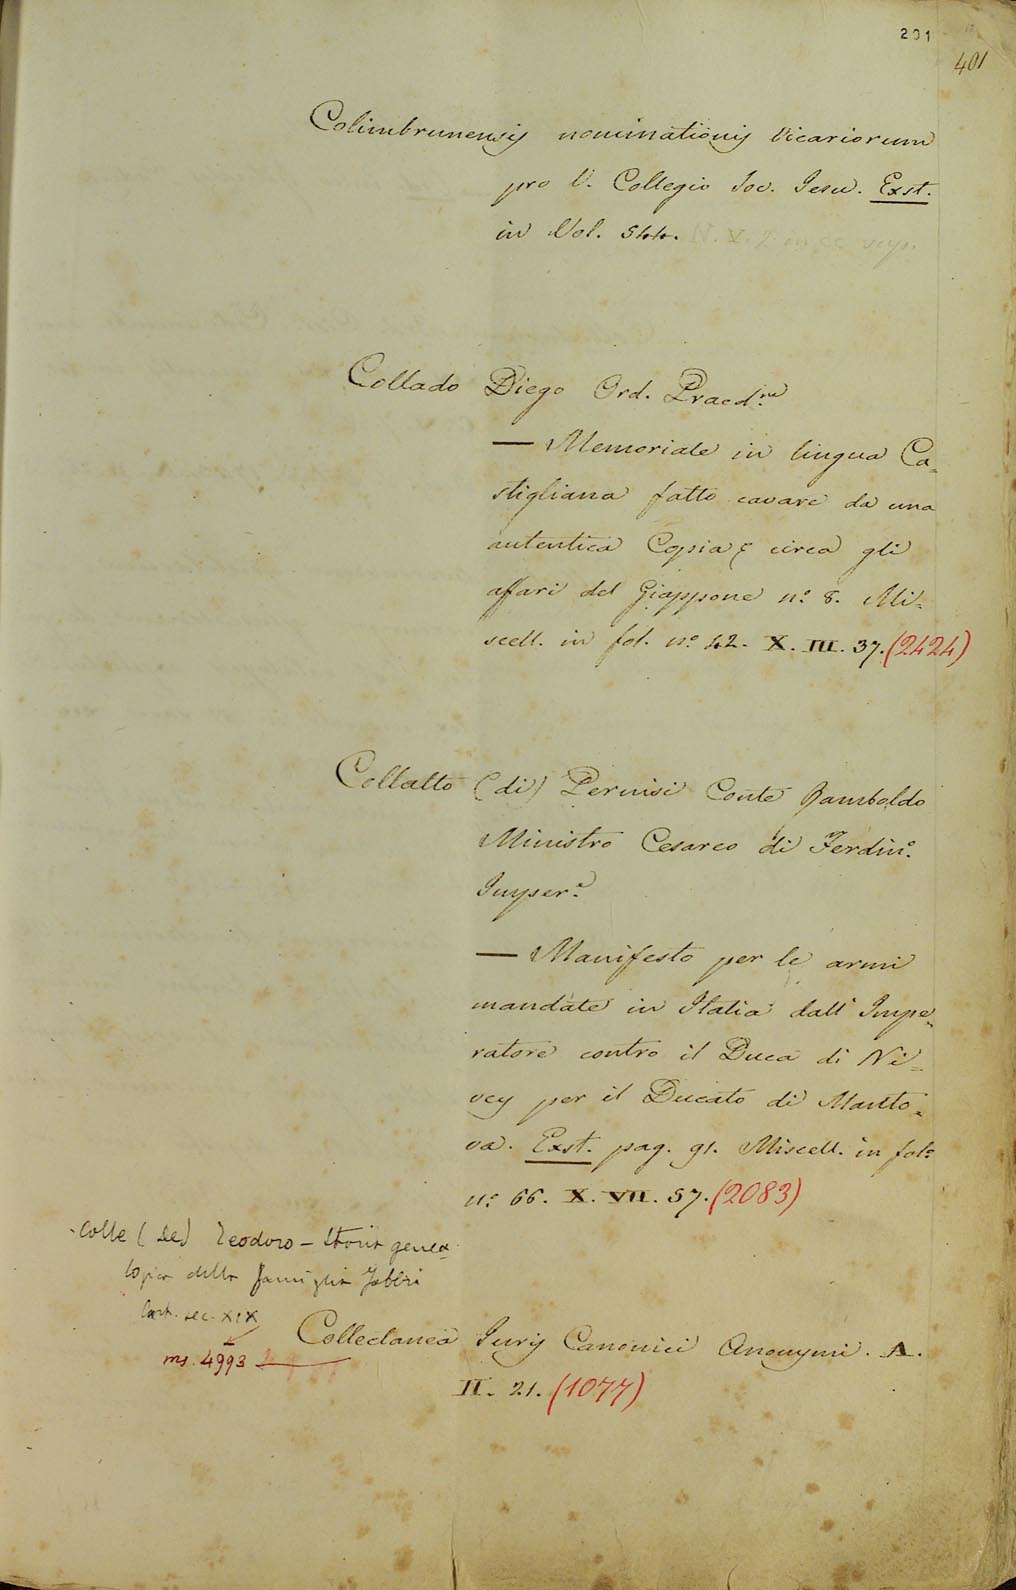 201
401
Colimbrunensis nominationis Vicariorum
pro V. Collegio Soc. Jesu. Exst.
in Vol. 544.
Collado Diego Ord. Praed.
— Memoriale in lingua Ca-
stigliana fatto cavare da una
autentica Copia circa gli
affari del Giappone n.° 8. Mi-
scell. in fol. n.° 42. X. III. 37. (2424)
Collalto (di) Conte Ramboldo
Ministro Cesareo di Ferdin.°
Imper.e
— Manifesto per le armi
mandate in Italia dall' Impe-
ratore contro il Duca di Ni-
vers per il Ducato di Manto-
va. Exst. pag. 91. Miscell. in fol.°
n.° 66. X. VII. 57. (2083)
Colle (De) Teodoro – Storia genea-
logica della famiglia
Cart. sec. XIX
ms. 4993
Collectanea Juris Canonici Anonymi. A.
II. 21. (1077)